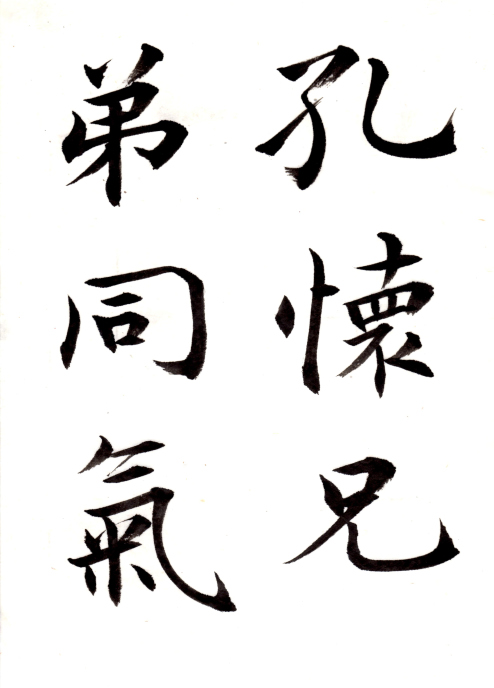 孔懷兄
弟同氣